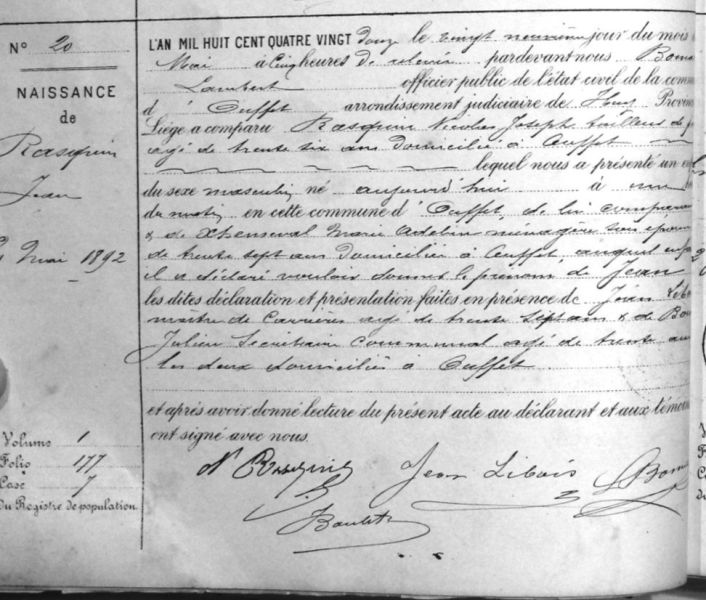 N° 20
NAISSANCE
de
Rasquin
Jean
Mai 1892
L'AN MIL HUIT CENT QUATRE VINGT douze le vingt neuvième jour du mois
Mai à cinq heures de relevée pardevant nous
Lambert officier public de l'état civil de la com
d' Ouffet arrondissement judiciaire de Huy Provin
Liége a comparu Rasquin Nicolas Joseph tailleur de
agé de trente six ans domicilié à Ouffet
lequel nous a présenté un
du sexe masculin né aujourd'hui à une
du matin en cette commune d' Ouffet, de lui comparant
& de Xhenseval Marie Adeline ménagère son
de trente sept ans domiciliée à Ouffet auquel
il a déclaré vouloir donner le prénom de Jean
les dites déclaration et présentation faites en présence de Jean
maître de Carrières agé de trente sept ans & de
Julien Secrétaire communal agé de trente
les deux domiciliés à Ouffet
et après avoir donné lecture du présent acte au déclarant et aux témoins
ont signé avec nous.
N Rasquin Jean Libois L Bom
Volume 1
Folio 177
Case 7
du Registre de population